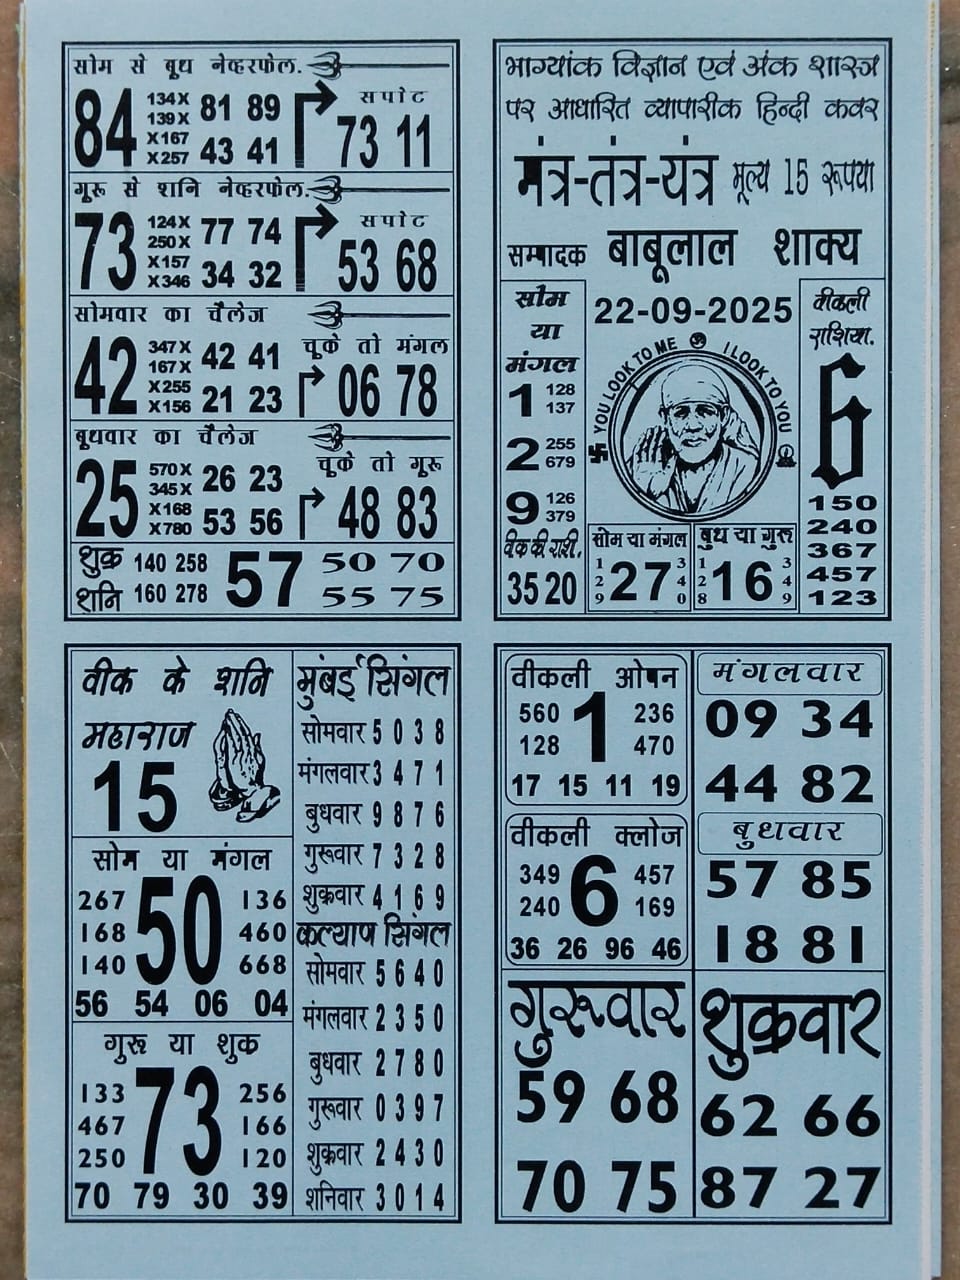 सोम से बूध नेव्हरफेल.
84
134X
139X
X167
X257
81 89
43 41
सपोट
73 11
गुरू से शनि नेव्हरफेल.
73
124X
250X
X157
X346
77 74
34 32
सपोट
53 68
सोमवार का चैलेज
42
347X
167X
X255
X156
42 41
21 23
चूके तो मंगल
06 78
बूधवार का चैलेज
25
570X
345X
X168
X780
26 23
53 56
चूके तो गूरू
48 83
शुक्र 140 258
शनि 160 278
57
50 70
55 75
भाग्यांक विज्ञान एवं अंक शास्त्र
पर आधारित व्यापारीक हिन्दी कवर
मंत्र-तंत्र-यंत्र मूल्य 15 रूपया
सम्पादक बाबूलाल शाक्य
सोम
या
मंगल
1 128
137
2 255
679
9 126
379
वीक की राशी.
35 20
22-09-2025
YOU LOOK TO ME ॐ I LOOK TO YOU
सोम या मंगल
1
2
9
27
3
4
0
बुध या गुरू
1
2
8
16
3
4
9
वीकली
राशिया.
6
150
240
367
457
123
वीक के शनि
महाराज
15
सोम या मंगल
267
168
140
50
136
460
668
56 54 06 04
गुरू या शुक
133
467
250
73
256
166
120
70 79 30 39
मुंबई सिंगल
सोमवार 5 0 3 8
मंगलवार 3 4 7 1
बुधवार 9 8 7 6
गुरूवार 7 3 2 8
शुक्रवार 4 1 6 9
कल्याण सिंगल
सोमवार 5 6 4 0
मंगलवार 2 3 5 0
बुधवार 2 7 8 0
गुरूवार 0 3 9 7
शुक्रवार 2 4 3 0
शनिवार 3 0 1 4
वीकली ओपन
560
128
1
236
470
17 15 11 19
वीकली क्लोज
349
240
6
457
169
36 26 96 46
मंगलवार
09 34
44 82
बुधवार
57 85
18 81
गुरूवार
59 68
70 75
शुक्रवार
62 66
87 27